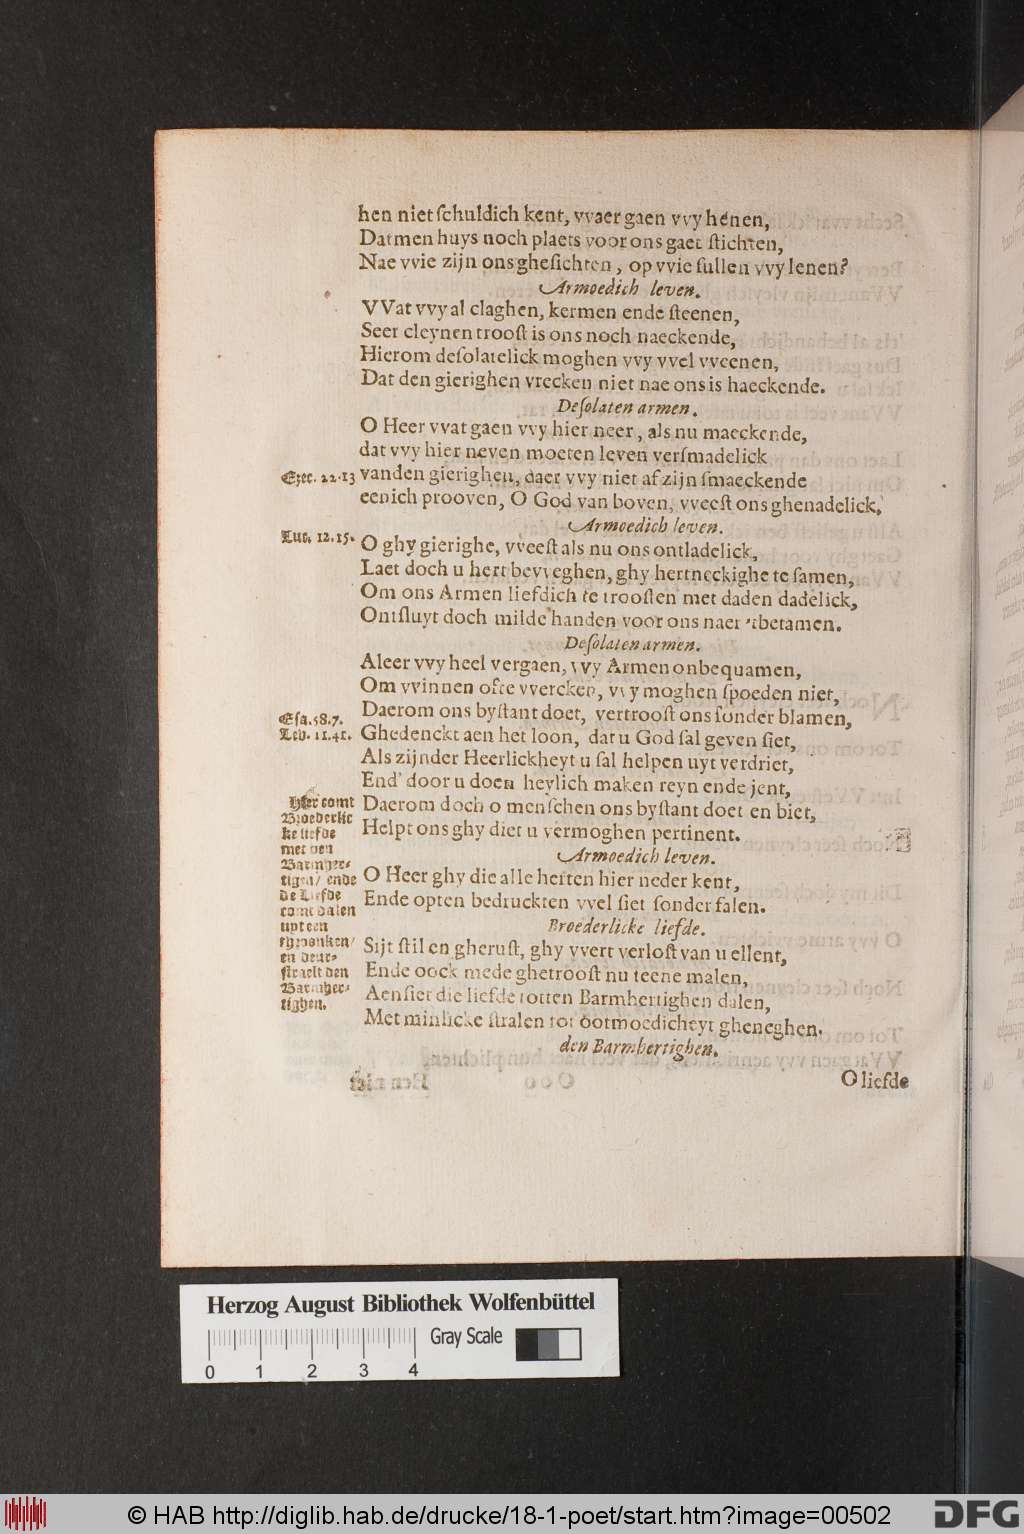 hen niet ſchuldich kent, vvaer gaen vvy henen,
Datmen huys noch plaets voor ons gaet ſtichten,
Nae vvie zijn ons gheſichten, op vvie ſullen vvy lenen?
Armoedich leven.
VVat vvy al claghen, kermen ende ſteenen,
Seer cleynen trooſt is ons noch naeckende,
Hierom deſolatelick moghen vvy vvel vveenen,
Dat den gierighen vrecken niet nae ons is haeckende.
Deſolaten armen.
O Heer vvat gaen vvy hier neer, als nu maeckende,
dat vvy hier neven moeten leven verſmadelick
Ezec. 22.13
vanden gierighen, daer vvy niet af zijn ſmaeckende
eenich prooven, O God van boven, vveeſt ons ghenadelick,
Armoedich leven.
Luc. 12.15.
O ghy gierighe, vveeſt als nu ons ontladelick,
Laet doch u hert bevveghen, ghy hertneckighe te ſamen,
Om ons Armen liefdich te trooſten met daden dadelick,
Ontſluyt doch milde handen voor ons naer 'tbetamen.
Deſolaten armen.
Aleer vvy heel vergaen, vvy Armen onbequamen,
Om vvinnen ofte vvercken, vvy moghen ſpoeden niet,
Eſa. 58.7.
Daerom ons byſtant doet, vertrooſt ons ſonder blamen,
Lev. 11.41.
Ghedenckt aen het loon, dat u God ſal geven ſiet,
Als zijnder Heerlickheyt u ſal helpen uyt verdriet,
End' door u doen heylich maken reyn ende jent,
Daerom doch o menſchen ons byſtant doet en biet,
Helpt ons ghy diet u vermoghen pertinent.
Hier comt
Broederlic
ke liefde
met den
Barmher-
tigen/ ende
de Liefde
comt dalen
uyt een
thronken/
en deur-
ſtraelt den
Barmher-
tighen.
Armoedich leven.
O Heer ghy die alle herten hier neder kent,
Ende opten bedruckten vvel ſiet ſonder falen.
Broederlicke liefde.
Sijt ſtil en gheruſt, ghy vvert verloſt van u ellent,
Ende oock mede ghetrooſt nu teene malen,
Aenſiet die liefde totten Barmhertighen dalen,
Met minlicke ſtralen tot ootmoedicheyt gheneghen.
den Barmhertighen.
O liefde
Herzog August Bibliothek Wolfenbüttel
Gray Scale
0 1 2 3 4
© HAB http://diglib.hab.de/drucke/18-1-poet/start.htm?image=00502
DFG